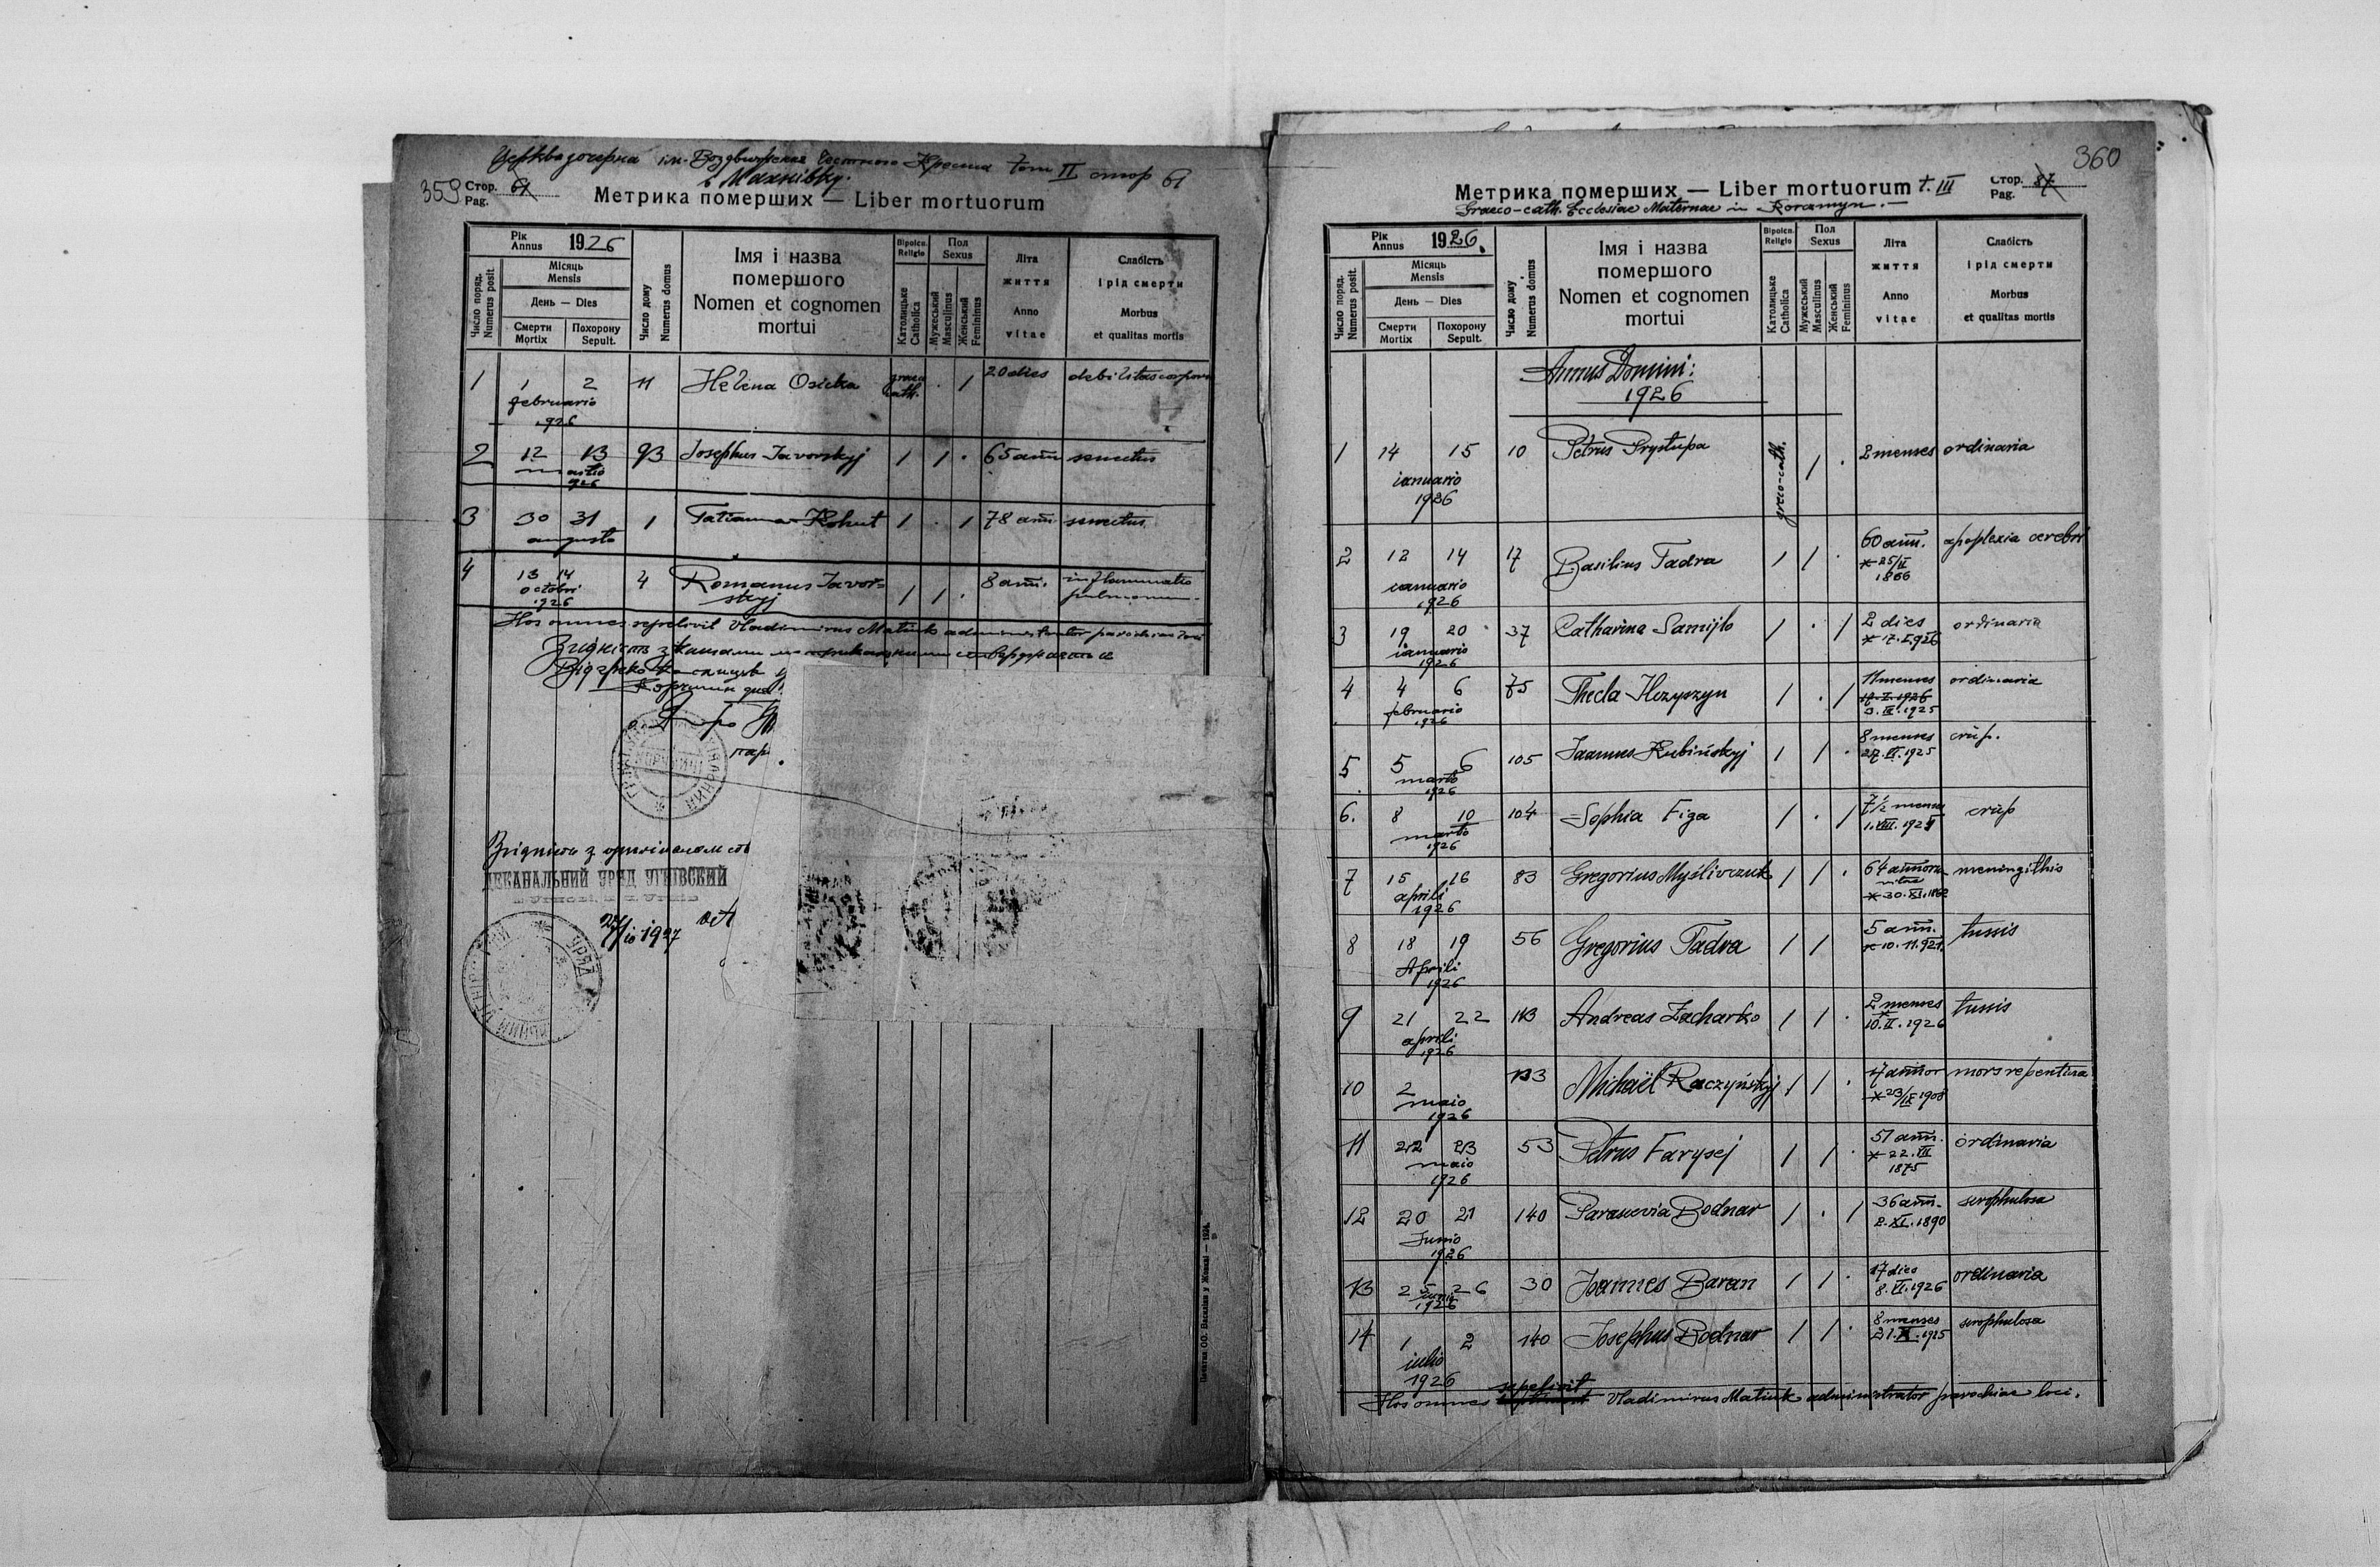 Церква дочерна ім. Воздвиження Чесного Креста tom II стор 61
в Махнівку.
359 Стор. 61
Pag.
Метрика померших — Liber mortuorum
Рік Annus 1926
Число поряд. Numerus posit.
Місяць Mensis
День — Dies
Смерти Mortix
Похорону Sepult.
Число дому Numerus domus
Імя і назва помершого
Nomen et cognomen mortui
Віроісп. Religio
Католицьке Catholica
Пол Sexus
Мужеський Masculinus
Женський Femininus
Літа життя
Anno vitae
Слабість і рід смерти
Morbus et qualitas mortis
1 1 2 februario 1926 11 Helena Osicka graeco cath. . 1 20 dies debilitas corporis
2 12 13 martio 926 93 Josephus Javorskyj 1 1 . 65 ann senectus
3 30 31 augusto 1 Tatianna Kohut 1 . 1 78 ann senectus
4 13 14 octobri 1926 4 Romanus Javorskyj 1 1 . 8 ann. inflammatio pulmonum
Hos omnes sepelivit Vladimirus Matiuk administrator parochiae loci
Згідність з
Згідність з оригіналом
ДЕКАНАЛЬНИЙ УРЯД УГНІВСКИЙ
1927
Печатня ОО. Василіян у Жовкві — 1924.
360
Метрика померших — Liber mortuorum t. III
Стор. 87
Pag.
Graeco-cath. Ecclesiae Maternae in Korczmyn.
Рік Annus 1926.
Число поряд. Numerus posit.
Місяць Mensis
День — Dies
Смерти Mortix
Похорону Sepult.
Число дому Numerus domus
Імя і назва помершого
Nomen et cognomen mortui
Віроісп. Religio
Католицьке Catholica
Пол Sexus
Мужеський Masculinus
Женський Femininus
Літа життя
Anno vitae
Слабість і рід смерти
Morbus et qualitas mortis
Annus Domini:
1926
1 14 15 ianuario 1926 10 Petrus Prystupa graeco-cath. 1 . 2 menses ordinaria
2 12 14 ianuario 1926 17 Basilius Fadra 1 1 . 60 ann. * 25/II 1866 apoplexia cerebri
3 19 20 ianuario 1926 37 Catharina Samijło 1 . 1 2 dies * 17.I.926 ordinaria
4 4 6 februario 1926 75 Thecla 1 . 1 11 menses 17.I.1926 3.III.1925 ordinaria
5 5 6 martio 1926 105 Joannes Kubińskyj 1 1 . 8 menses 27.VI.1925 crup.
6. 8 10 martio 1926 104 Sophia Figa 1 . 1 7 1/2 menses 1.VIII.1925 crup
7 15 16 aprili 1926 83 Gregorius Myśliwczuk 1 1 . 64 annorum vitae * 30.XI.1862 meningithis
8 18 19 Aprili 1926 56 Gregorius Fadra 1 1 5 ann. * 10.11.921. tussis
9 21 22 aprili 1926 113 Andreas Zacharko 1 1 . 2 menses * 10.II.1926 tussis
10 2 maio 1926 133 Michaël Raczyńskyj 1 1 . annor * 23/IX 1908 mors repentina
11 22 23 maio 1926 53 Petrus Farysej 1 1 . 51 ann. * 22.VII 1875 ordinaria
12 20 21 Junio 1926 140 Parascevia Bodnar 1 . 1 36 ann. 2.XI.1890 scrophulosa
13 25 26 junio 1926 30 Joannes Baran 1 1 . 17 dies 8.VI.1926 ordinaria
14 1 2 iulio 1926 140 Josephus Bodnar 1 1 . 8 menses 21.X.1925 scrophulosa
Hos omnes sepelivit Vladimirus Matiuk administrator parochiae loci.